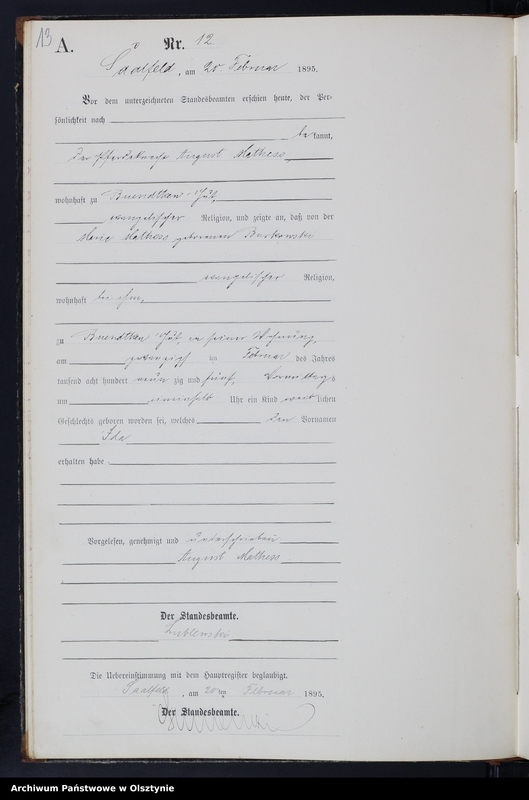 13
A.
Nr. 12
Saalfeld, am 20. Februar 1895.
Vor dem unterzeichneten Standesbeamten erschien heute, der Per-
sönlichkeit nach
bekannt,
der Pferdeknecht August Mathess
wohnhaft zu Buendtken Gut,
evangelischer Religion, und zeigte an, daß von der
Maria Mathess geborenen
evangelischer Religion,
wohnhaft bei ihm,
zu Buendtken Gut, in seiner Wohnung,
am zwanzigsten Februar des Jahres
tausend acht hundert neunzig und fünf, Vormittags
um Uhr ein Kind weiblichen
Geschlechts geboren worden sei, welches den Vornamen
Ida
erhalten habe.
Vorgelesen, genehmigt und unterschrieben
August Mathess
Der Standesbeamte.
Die Uebereinstimmung mit dem Hauptregister beglaubigt.
Saalfeld, am 20ten Februar 1895.
Der Standesbeamte.
Archiwum Państwowe w Olsztynie